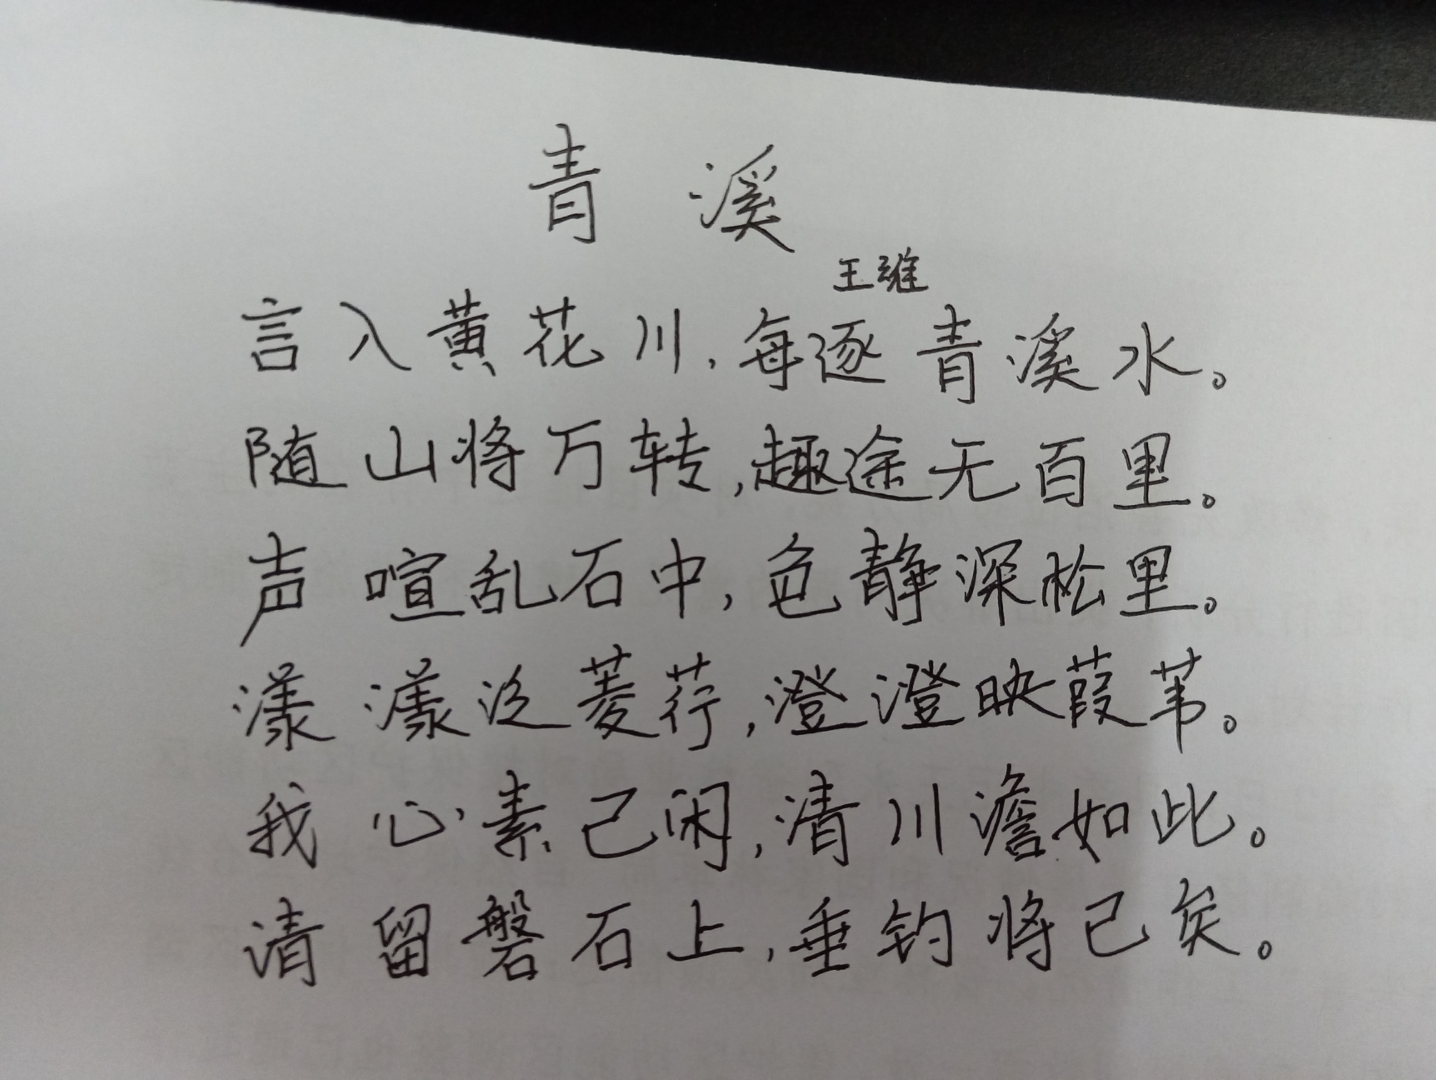 青溪
王维
言入黄花川,每逐青溪水。
随山将万转,趣途无百里。
声喧乱石中,色静深松里。
漾漾泛菱荇,澄澄映葭苇。
我心素已闲,清川澹如此。
请留磐石上,垂钓将已矣。